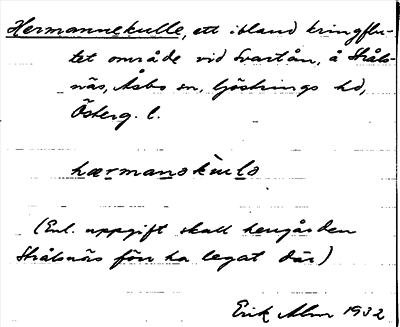 Hermannekulle, ett ibland kringflu-
tet område vid Svartån, å Stråls-
näs, Åsbo sn, Göstrings hd,
Österg. l.
hærmanəkùlə
(Enl. uppgift skall herrgården
Strålsnäs förr ha legat där)
Erik Alm 1932